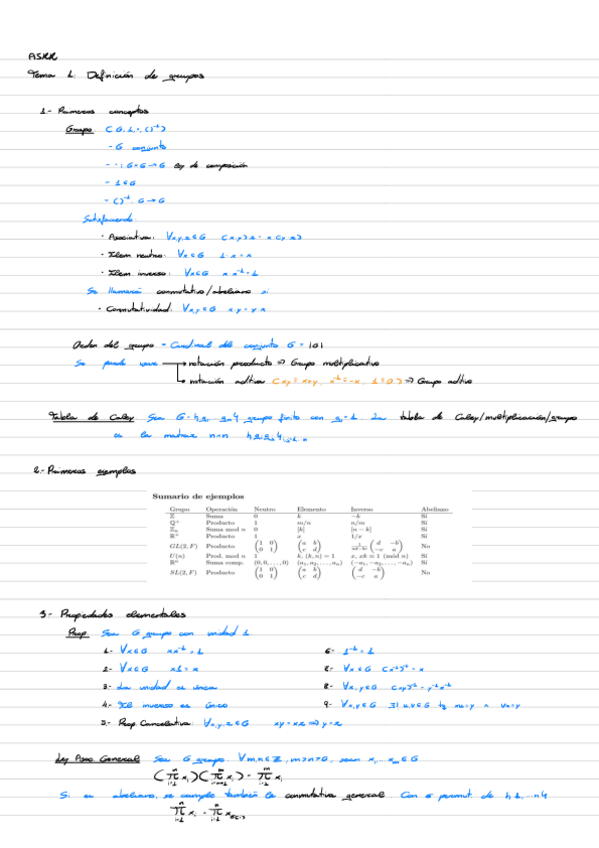 ASRR
Tema 1: Definición de grupos
1- Primeros conceptos
Grupo: (G, 1, ·, ( )⁻¹)
- G conjunto
- · : G×G → G ley de composición
- 1 ∈ G
- ( )⁻¹: G → G
Satisfaciendo:
· Asociativa: ∀x,y,z ∈ G (xy)z = x(yz)
· Elem neutro: ∀x ∈ G 1·x = x
· Elem. inverso: ∀x ∈ G x x⁻¹ = 1
Se llamará conmutativo/abeliano si
· Conmutatividad: ∀x,y ∈ G xy = yx
Orden del grupo = Cardinal del conjunto G = |G|
Se puede usar → notación producto ⇒ Grupo multiplicativo
↳ notación aditiva (xy = x+y, x⁻¹ = -x, 1 = 0) ⇒ Grupo aditivo
Tabla de Caley Sea G = {g₁ ... gₙ} grupo finito con g₁ = 1. La tabla de Caley/multiplicación/grupo
es la matriz n×n {gᵢgⱼ}ᵢ,ⱼ₌₁..ₙ
2.- Primeros ejemplos
Sumario de ejemplos
Grupo Operación Neutro Elemento Inverso Abeliano
ℤ Suma 0 k −k Sí
ℚ⁺ Producto 1 m/n n/m Sí
ℤₙ Suma mod n 0 [k] [n − k] Sí
ℝ* Producto 1 x 1/x Sí
GL(2, F) Producto (1 0 0 1) (a b c d) 1/(ad−bc) (d −b −c a) No
U(n) Prod. mod n 1 k, (k, n) = 1 x, xk = 1 (mod n) Sí
ℝⁿ Suma comp. (0, 0, . . . , 0) (a₁, a₂, . . . , aₙ) (−a₁, −a₂, . . . , −aₙ) Sí
SL(2, F) Producto (1 0 0 1) (a b c d) (d −b −c a) No
3- Propiedades elementales
Prop Sea G grupo con unidad 1
1- ∀x ∈ G x x⁻¹ = 1
2- ∀x ∈ G x1 = x
3- La unidad es única
4- El inverso es único
5- Prop. Cancelativa: ∀x,y,z ∈ G xy = xz ⇒ y = z
6- 1⁻¹ = 1
∀x ∈ G (x⁻¹)⁻¹ = x
8- ∀x,y ∈ G (xy)⁻¹ = y⁻¹x⁻¹
9- ∀x,y ∈ G ∃! u,v ∈ G tq xu = y ∧ vx = y
Ley Asoc. General Sea G grupo. ∀m,n ∈ ℤ, m>n>0, sean x₁...xₘ ∈ G
Si es abeliano, se cumple también la conmutativa general. Con σ permut. de {1,...n}